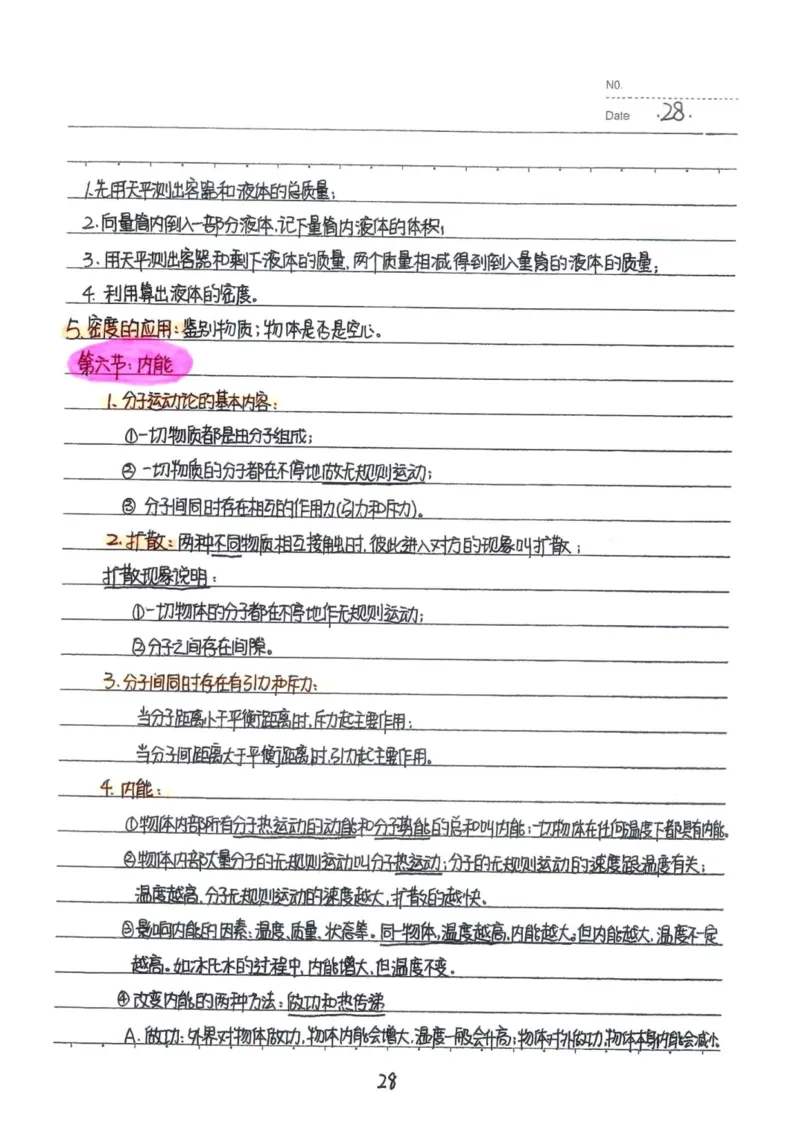 NO.
Date ·28·
1.先用天平测出容器和液体的总质量；
2.向量筒内倒入一部分液体,记下量筒内液体的体积；
3.用天平测出容器和剩下液体的质量,两个质量相减得到倒入量筒的液体的质量；
4.利用算出液体的密度。
5.密度的应用：鉴别物质；物体是否是空心。
第六节：内能
1、分子运动论的基本内容：
①一切物质都是由分子组成；
② 一切物质的分子都在不停地做无规则运动；
③ 分子间同时存在相互的作用力(引力和斥力)。
2.扩散：两种不同物质相互接触时,彼此进入对方的现象叫扩散；
扩散现象说明：
①一切物体的分子都在不停地作无规则运动；
②分子之间存在间隙。
3.分子间同时存在有引力和斥力：
当分子距离小于平衡距离时,斥力起主要作用；
当分子间距离大于平衡距离时,引力起主要作用。
4.内能：
①物体内部所有分子热运动的动能和分子势能的总和叫内能；一切物体在任何温度下都具有内能。
②物体内部大量分子的无规则运动叫分子热运动；分子的无规则运动的速度跟温度有关；
温度越高,分子无规则运动的速度越大,扩散的越快。
③影响内能的因素：温度、质量、状态等。同一物体,温度越高,内能越大。但内能越大,温度不一定
越高。如冰化水的过程中,内能增大,但温度不变。
④改变内能的两种方法：做功和热传递
A.做功：外界对物体做功,物体内能会增大,温度一般会升高；物体对外做功,物体本身内能会减小
28